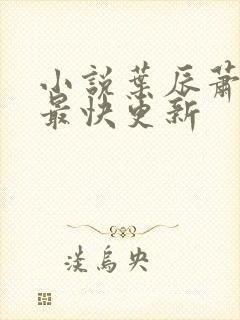 小說葉辰蕭
最快更新
淡烏央